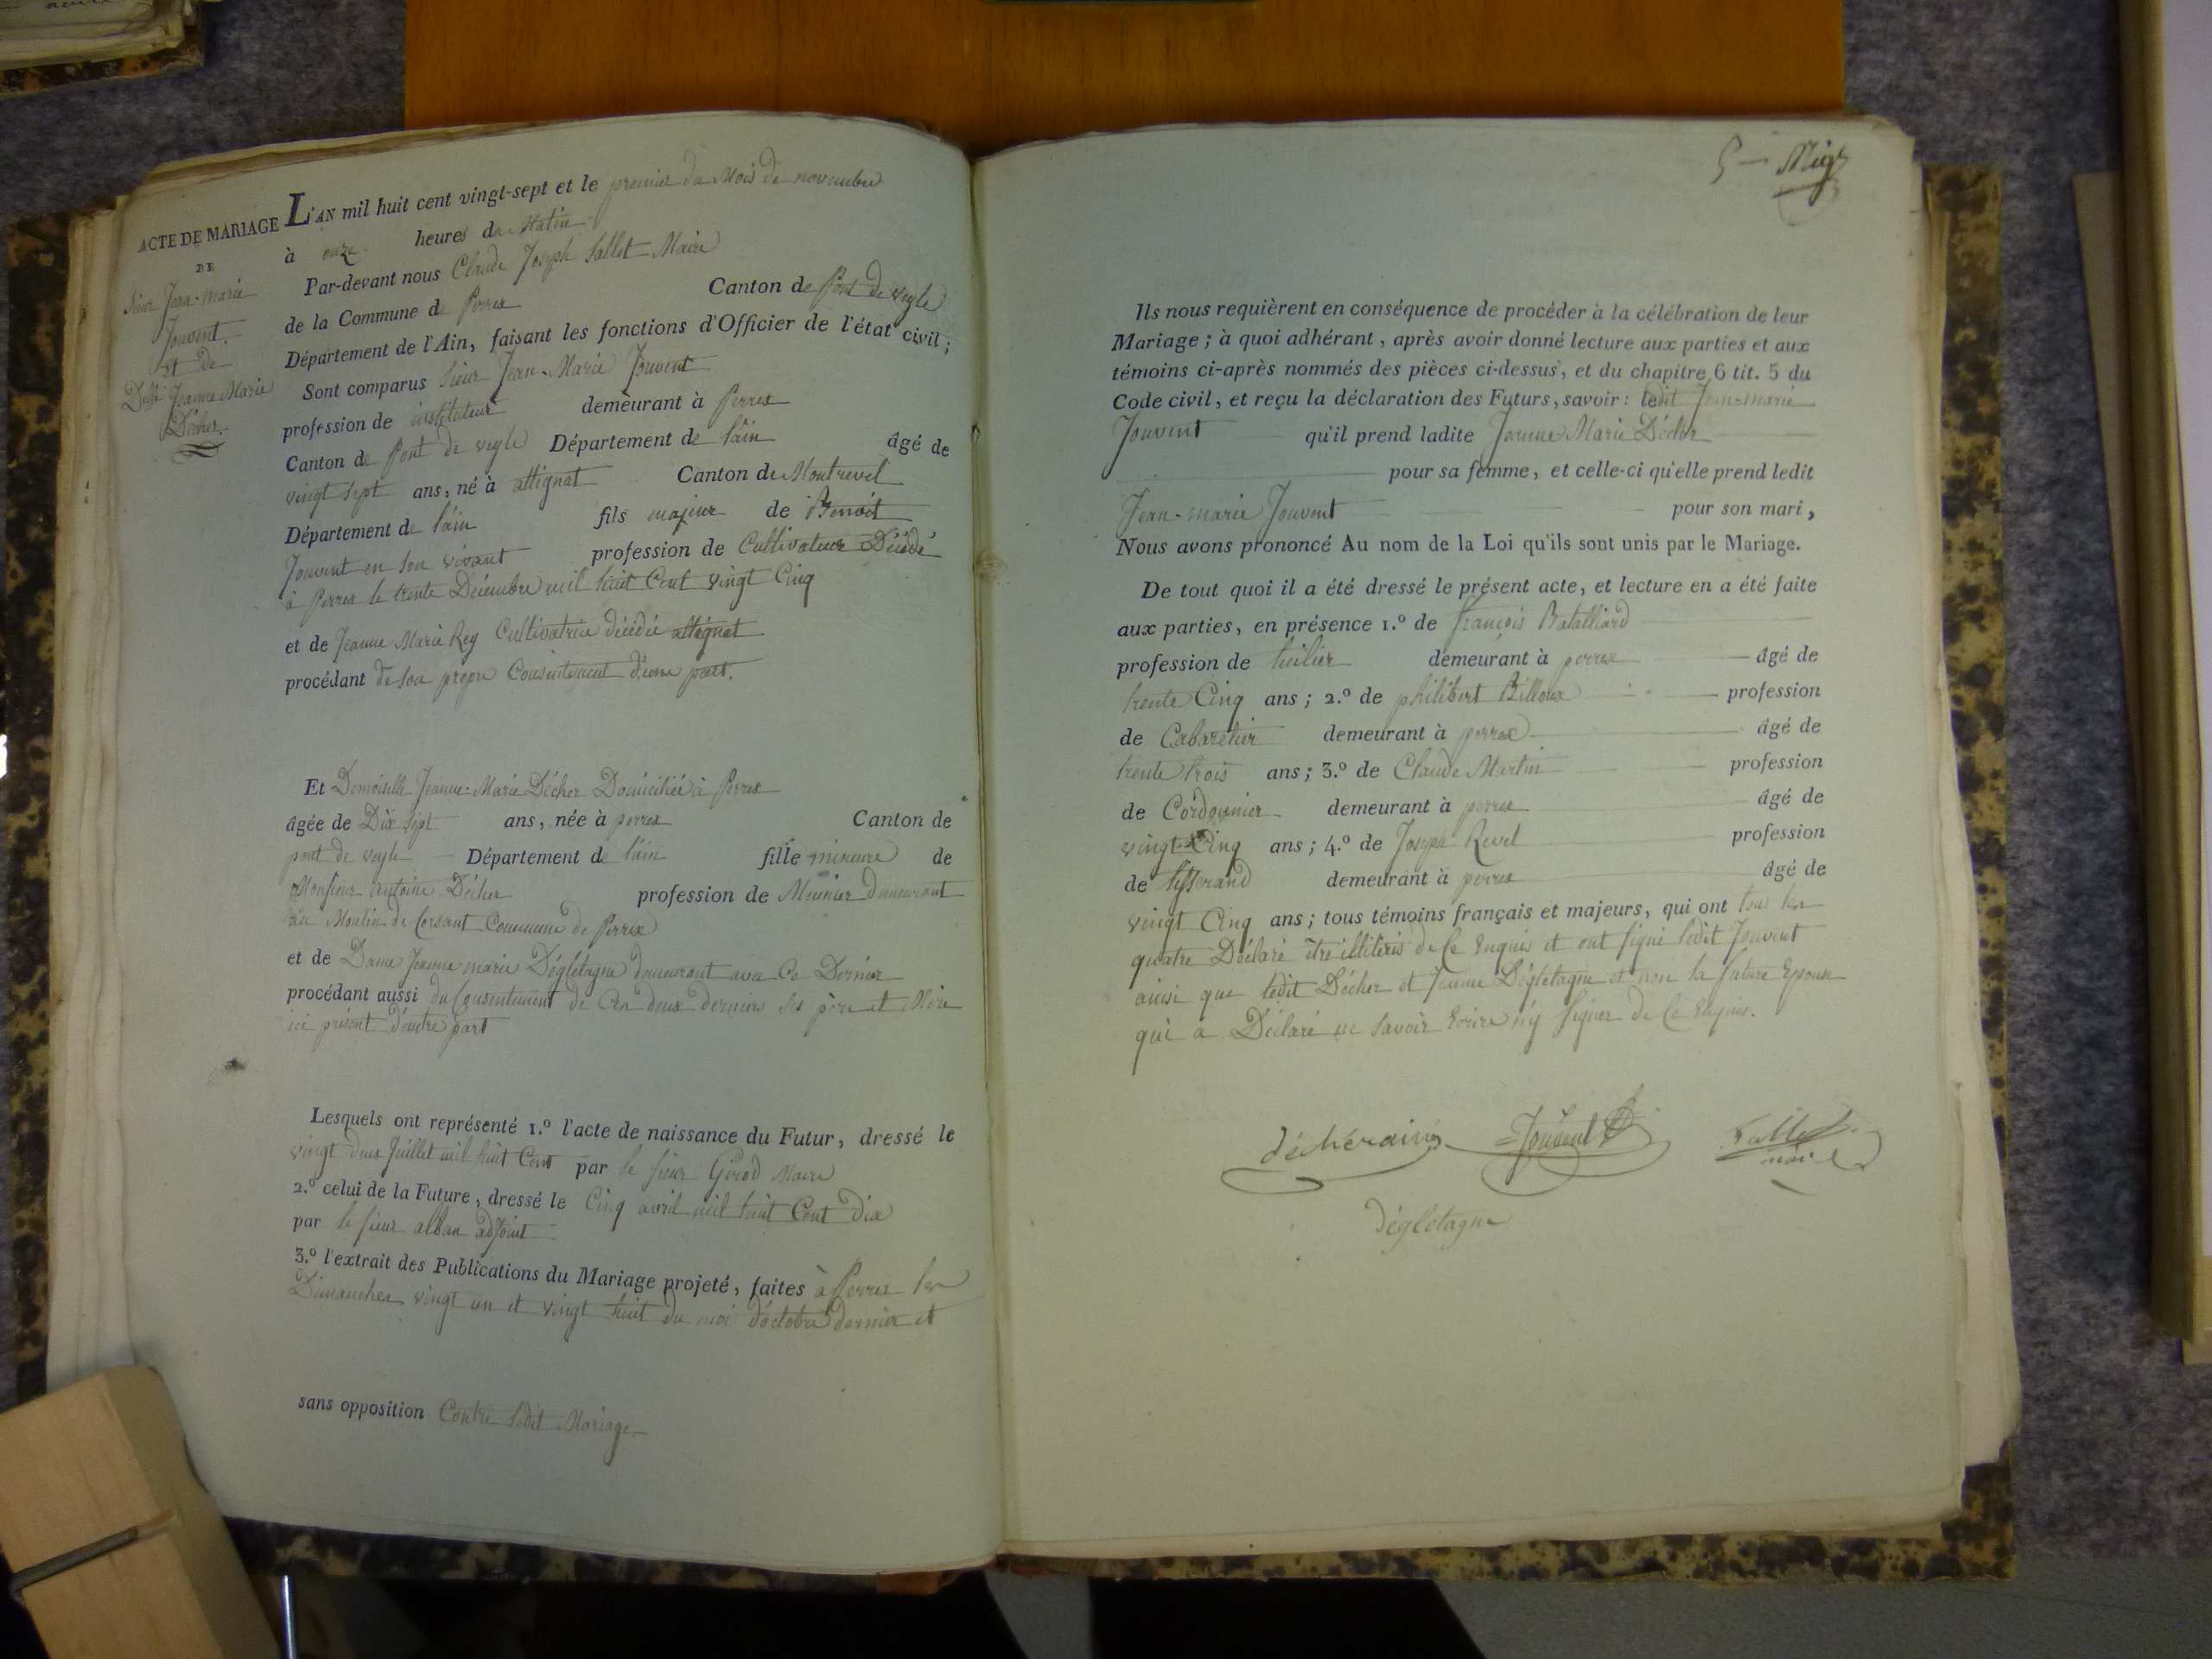 ACTE DE MARIAGE
DE
Sieur Jean-Marie
Jouvent.
et de
Delle Jeanne Marie
Décher.
L'AN mil huit cent vingt-sept et le premier du Mois de novembre
à onze heures du Matin
Par-devant nous Claude Joseph Sallet Maire
de la Commune de Perrex Canton de Pont de veyle
Département de l'Ain, faisant les fonctions d'Officier de l'état civil;
Sont comparus Sieur Jean-Marie Jouvent
profession de instituteur demeurant à Perrex
Canton de Pont de veyle Département de l'ain âgé de
vingt sept ans, né à attignat Canton de Montrevel
Département de l'ain fils majeur de Benoit
Jouvent en son vivant profession de Cultivateur Décédé
à Perrex le trente Décembre mil huit Cent vingt Cinq
et de Jeanne Marie Rey Cultivatrice décédée attignat
procédant de son propre Consentement d'une part.
Et Demoiselle Jeanne-Marie Décher Domiciliée à Perrex
âgée de Dix sept ans, née à perrex Canton de
pont de veyle Département de l'ain fille mineure de
Monsieur antoine Décher profession de Meunier demeurant
au Moulin de Corsant Commune de Perrex
et de Dame Jeanne marie Dégletagne demeurant avec Ce Dernier
procédant aussi du Consentement de Ces deux derniers ses père et Mère
ici présent d'autre part
Lesquels ont représenté 1.º l'acte de naissance du Futur, dressé le
vingt deux Juillet mil huit Cent par le sieur Girod Maire
2.º celui de la Future, dressé le Cinq avril mil huit Cent dix
par le sieur alban adjoint
3.º l'extrait des Publications du Mariage projeté, faites à Perrex les
Dimanches vingt un et vingt huit du mois d'octobre dernier et
sans opposition Contre ledit Mariage
5
Ils nous requièrent en conséquence de procéder à la célébration de leur
Mariage; à quoi adhérant, après avoir donné lecture aux parties et aux
témoins ci-après nommés des pièces ci-dessus, et du chapitre 6 tit. 5 du
Code civil, et reçu la déclaration des Futurs, savoir: ledit Jean-marie
Jouvent qu'il prend ladite Jeanne Marie Décher
pour sa femme, et celle-ci qu'elle prend ledit
Jean-marie Jouvent pour son mari,
Nous avons prononcé Au nom de la Loi qu'ils sont unis par le Mariage.
De tout quoi il a été dressé le présent acte, et lecture en a été faite
aux parties, en présence 1.º de françois Batalliard
profession de huilier demeurant à perrex âgé de
trente Cinq ans; 2.º de philibert Billoux profession
de Cabaretier demeurant à perrex âgé de
trente trois ans; 3.º de Claude Martin profession
de Cordonnier demeurant à perrex âgé de
vingt Cinq ans; 4.º de Joseph Revel profession
de tisserand demeurant à perrex âgé de
vingt Cinq ans; tous témoins français et majeurs, qui ont tous les
quatre Déclaré être illitérés de Ce Enquis et ont signé ledit Jouvent
ainsi que ledit Décher et Jeanne Dégletagne et non la future Epouse
qui a Déclaré ne savoir Ecrire n'y signer de Ce Enquise.
décher ainé Jouvent Sallet
maire
dégletagne